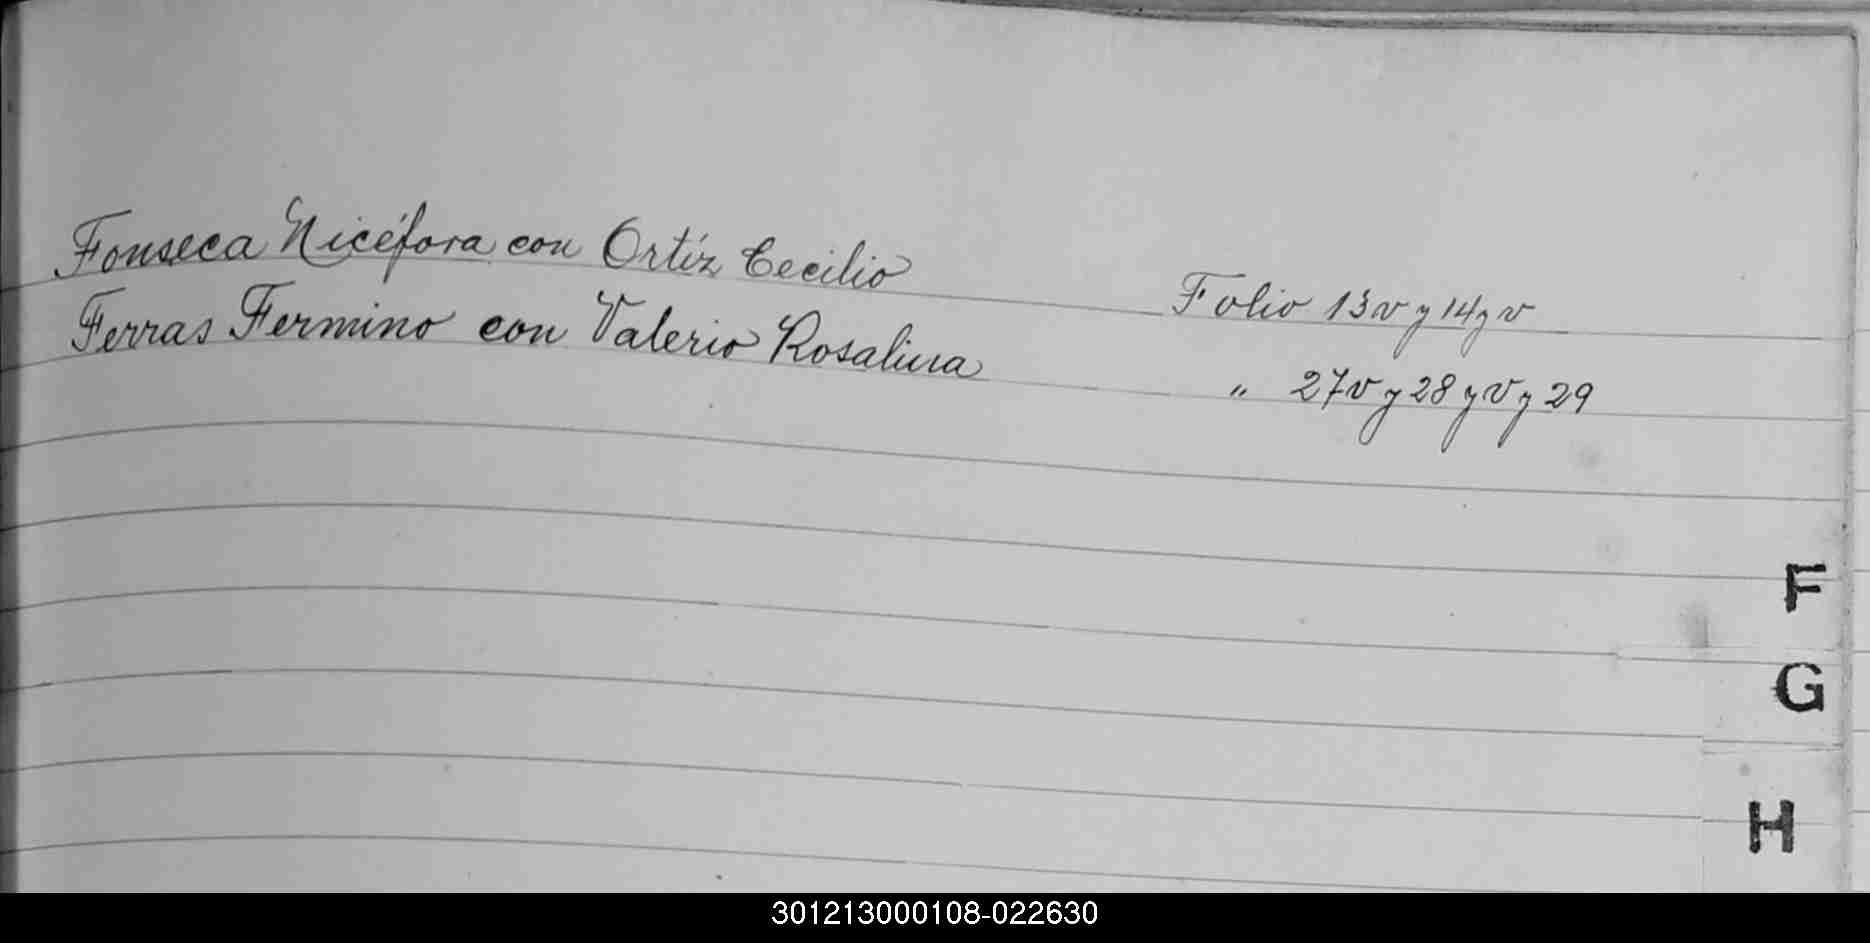 Fonseca Nicéfora con Ortíz Cecilio Folio 13v y 14 y v
Ferras Fermino con Valerio Rosalina " 27v y 28 y v y 29
F
G
H
301213000108-022630